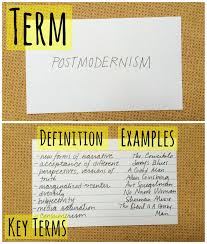 TERM
POSTMODERNISM
DEFINITION EXAMPLES
- new forms of narrative The Crucible
- acceptance of different Sonny's Blues
perspectives, versions of A Good Man
truth Allen Ginsberg
- marginalized Art Spiegelman
- diversity No Name Woman
- subjectivity Sherman Alexie
- media saturation
- consumerism Man.
KEY TERMS